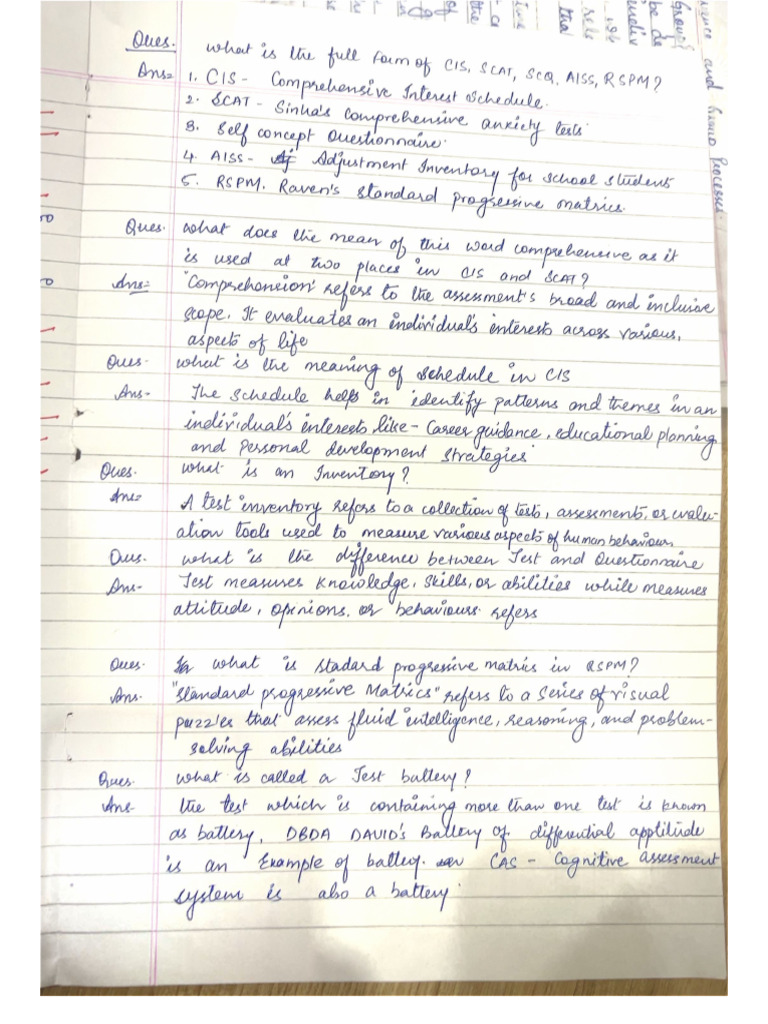 Ques. What is the full form of CIS, SCAT, SCQ, AISS, RSPM?
Ans= 1. CIS - Comprehensive Interest Schedule.
2. SCAT - Sinha's comprehensive anxiety tests
3. Self concept Questionnaire.
4. AISS- Adjustment Inventory for school student
5. RSPM. Raven's standard progressive matrics.
Ques. what does the mean of this word comprehensive as it
is used at two places in CIS and SCAT?
Ans= 'Comprehension' refers to the assessment's broad and inclusive
scope. It evaluates an individual's interests across various,
aspects of life
Ques. what is the meaning of schedule in CIS
Ans- The schedule helps in identify patterns and themes in an
individual's interests like - Career guidance, educational planning
and personal development strategies
Ques. what is an Inventory?
Ans= A test inventory refers to a collection of tests, assessments, or evalu-
ation tools used to measure various aspects of human behaviour.
Ques. what is the difference between Test and Questionnaire
Ans- Test measures knowledge, skills, or abilities while measures
attitude, opinions. or behaviours refers
Ques. what is stadard progressive matris in RSPM?
Ans. "Standard progressive Matrics" refers to a series of visual
puzzles that assess fluid intelligence, reasoning, and problem-
solving abilities
Ques. what is called a Test battery?
Ans- the test which is containing more than one test is known
as battery. DBDA DAVID's Battery of differential apptitude
is an Example of battery. CAS - Cognitive assessment
system is also a battery.
and Group Processes.